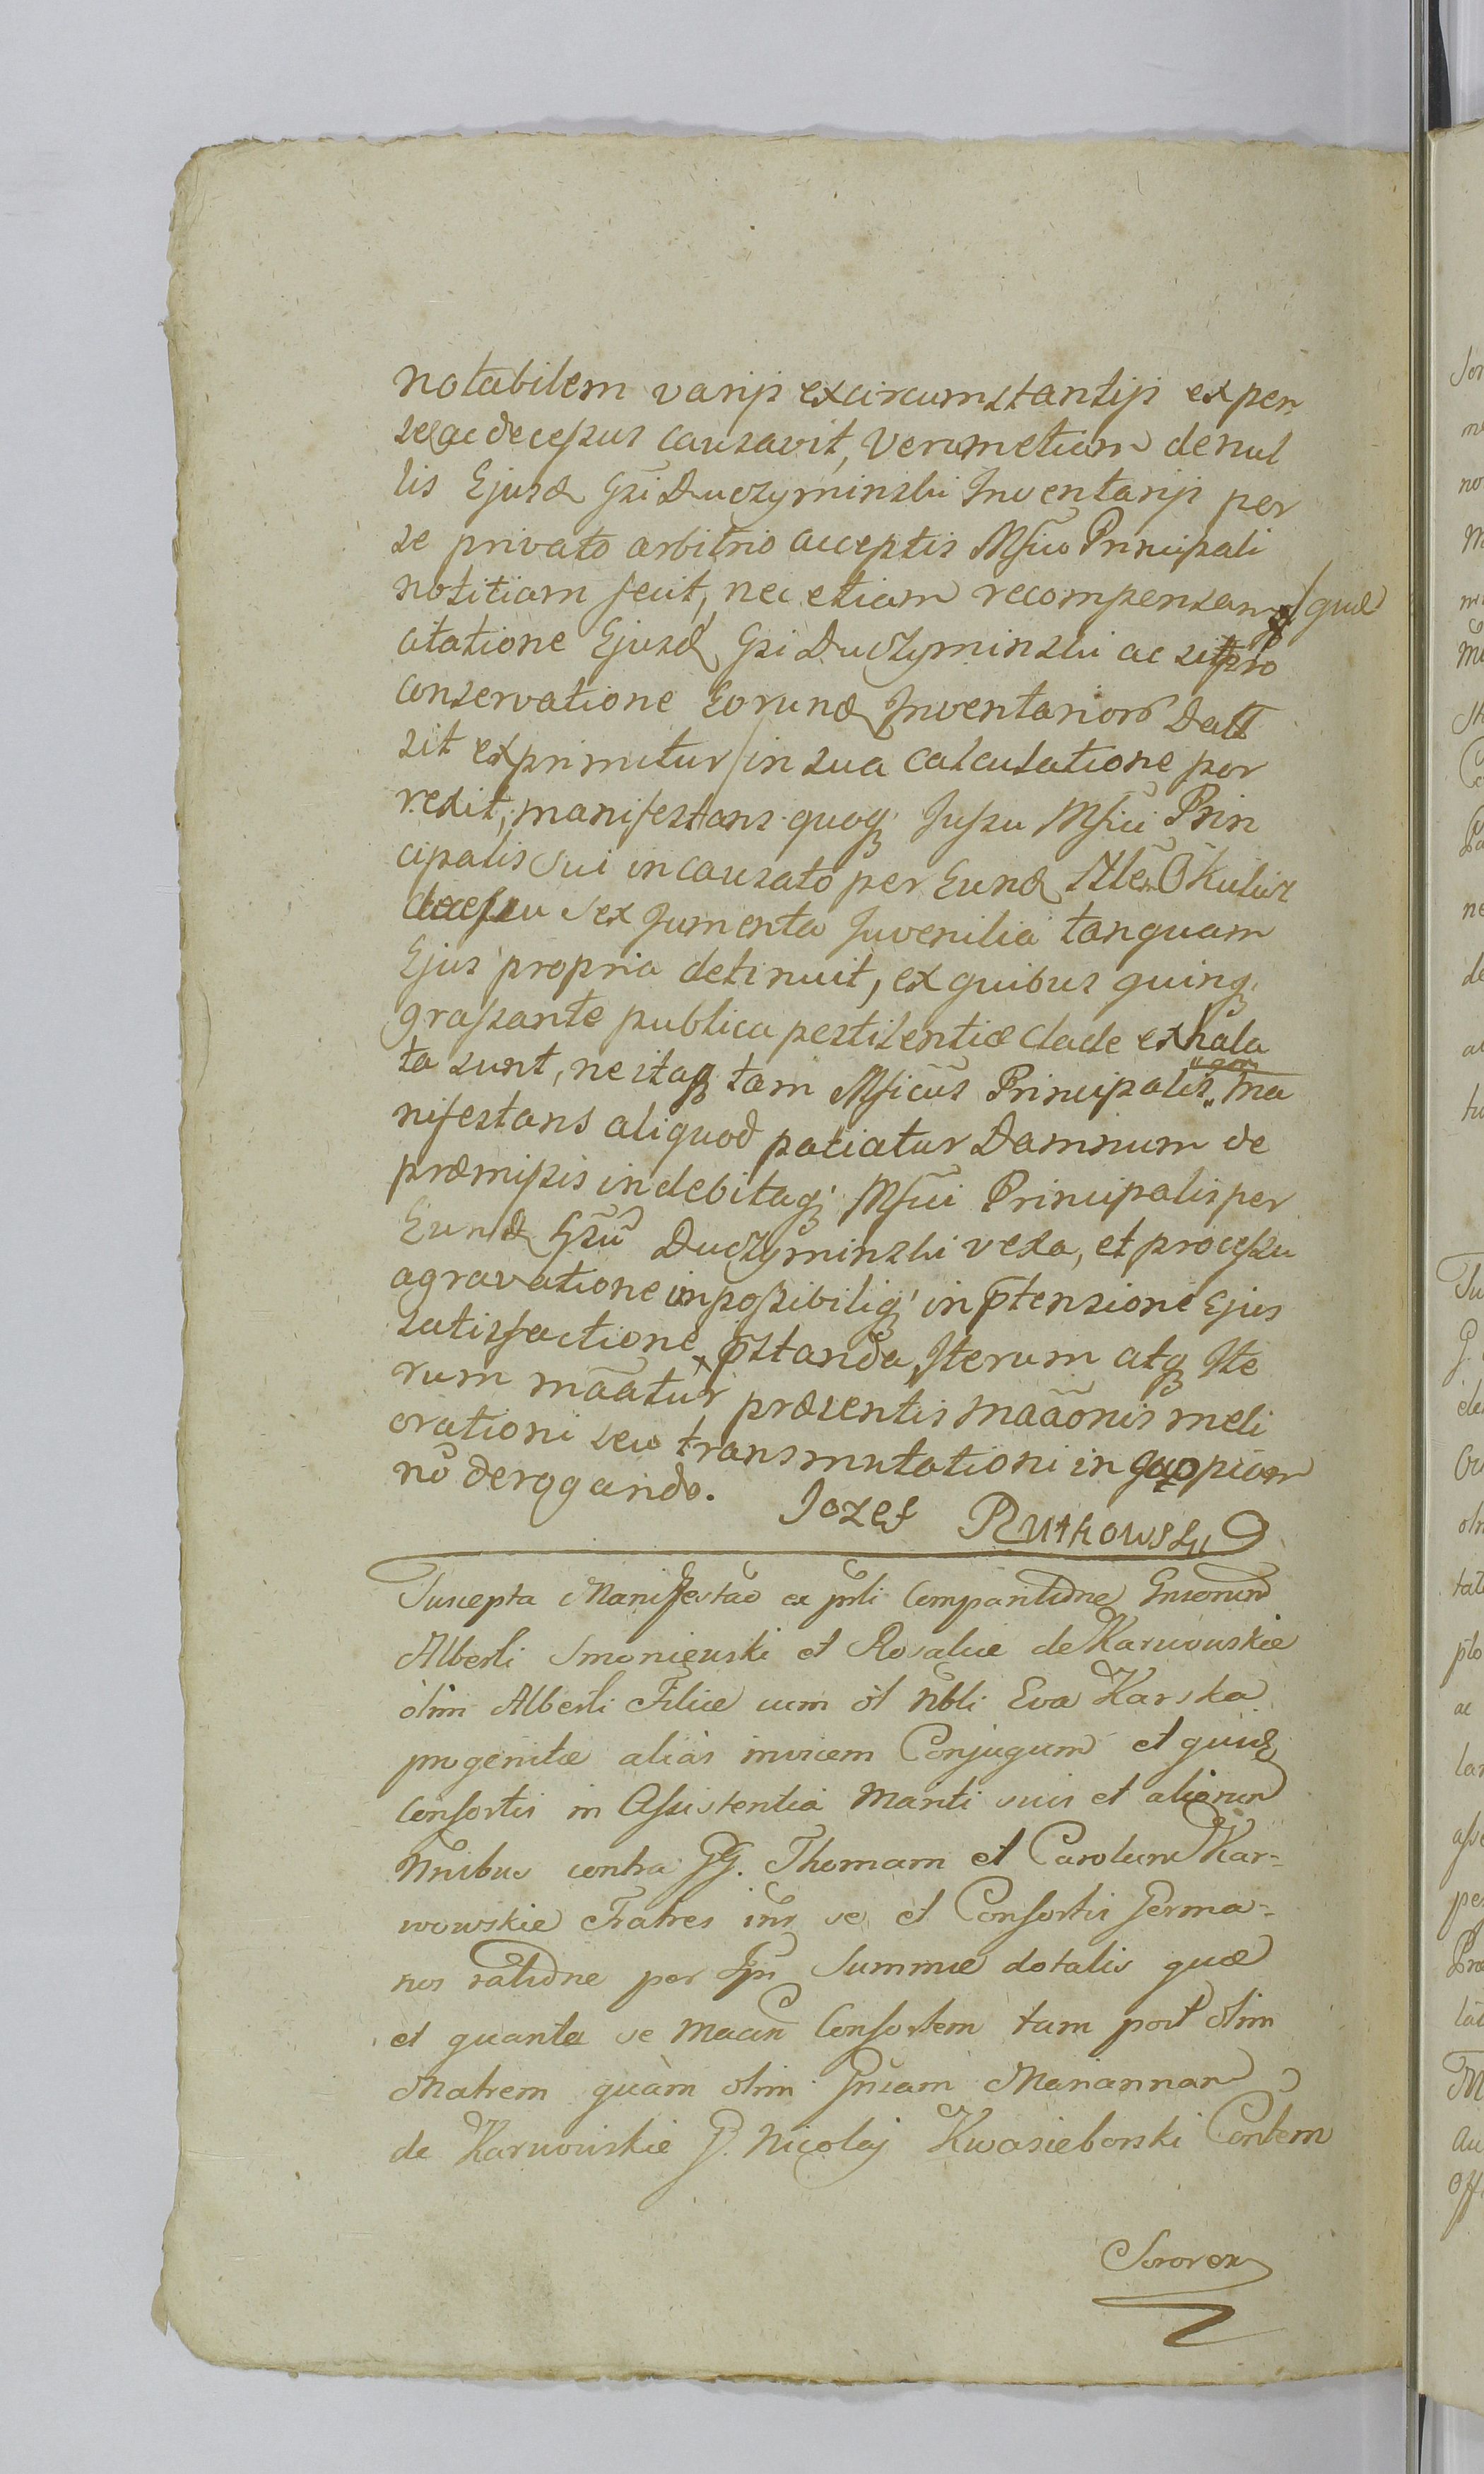 notabilem varijs ex circumstantijs expen
se ac decessus causavit, verum etiam de nul
lis Ejusd Gsi Duczyminski Inventarijs per
se privato arbitrio acceptis Mfico Principali
notitiam fecit, nec etiam recompensam /quæ
citatione Ejusd Gsi Duczyminski ac si pro
conservatione Eorund Inventarior Datt
sit exprimitur/ in sua calculatione por
rexit, manifestans quoq Jussu Mfici Prin
cipalis sui in causato per Eund Okulicz
decessu sex Jumenta Juvenilia tanquam
Ejus propria detinuit, ex quibus quinq
grassante publica pestilentiæ clade exhala
ta sunt, ne itaq tam Mficus Principalis Ma
nifestans aliquod patiatur Damnum de
præmissis indebitaq Mfici Principalis per
Eund Gsū Duczyminski vexa, et processu
agravatione inpossibiliq in ptensione Ejus
satisfactione pstanda Iterum atq Ite
rum māatur præsentis māaonis meli
orationi seu transmutationi in copiam
nō derogando. Jozef Rutkowski
Suscepta Manifestao ex psli Comparitione Gnsorum
Alberti Smoniewski et Rosaliæ de Karwowskie
olim Alberti Filiæ cum ol Nbli Eva Karska
progenitæ alias invicem Conjugum et quid
Consortis in Assistentia Mariti sui et aliorum
Nnibus contra GG. Thomam et Carolum Kar-
wowskie Fratres inr se et Consortis Germa-
nos ratione per Ips Summæ dotalis quæ
et quanta se Maan Consortem tam post olim
Matrem quàm olim Gnsam Mariannam
de Karwowskie G. Nicolaj Kwasieborski Contem
Sororem